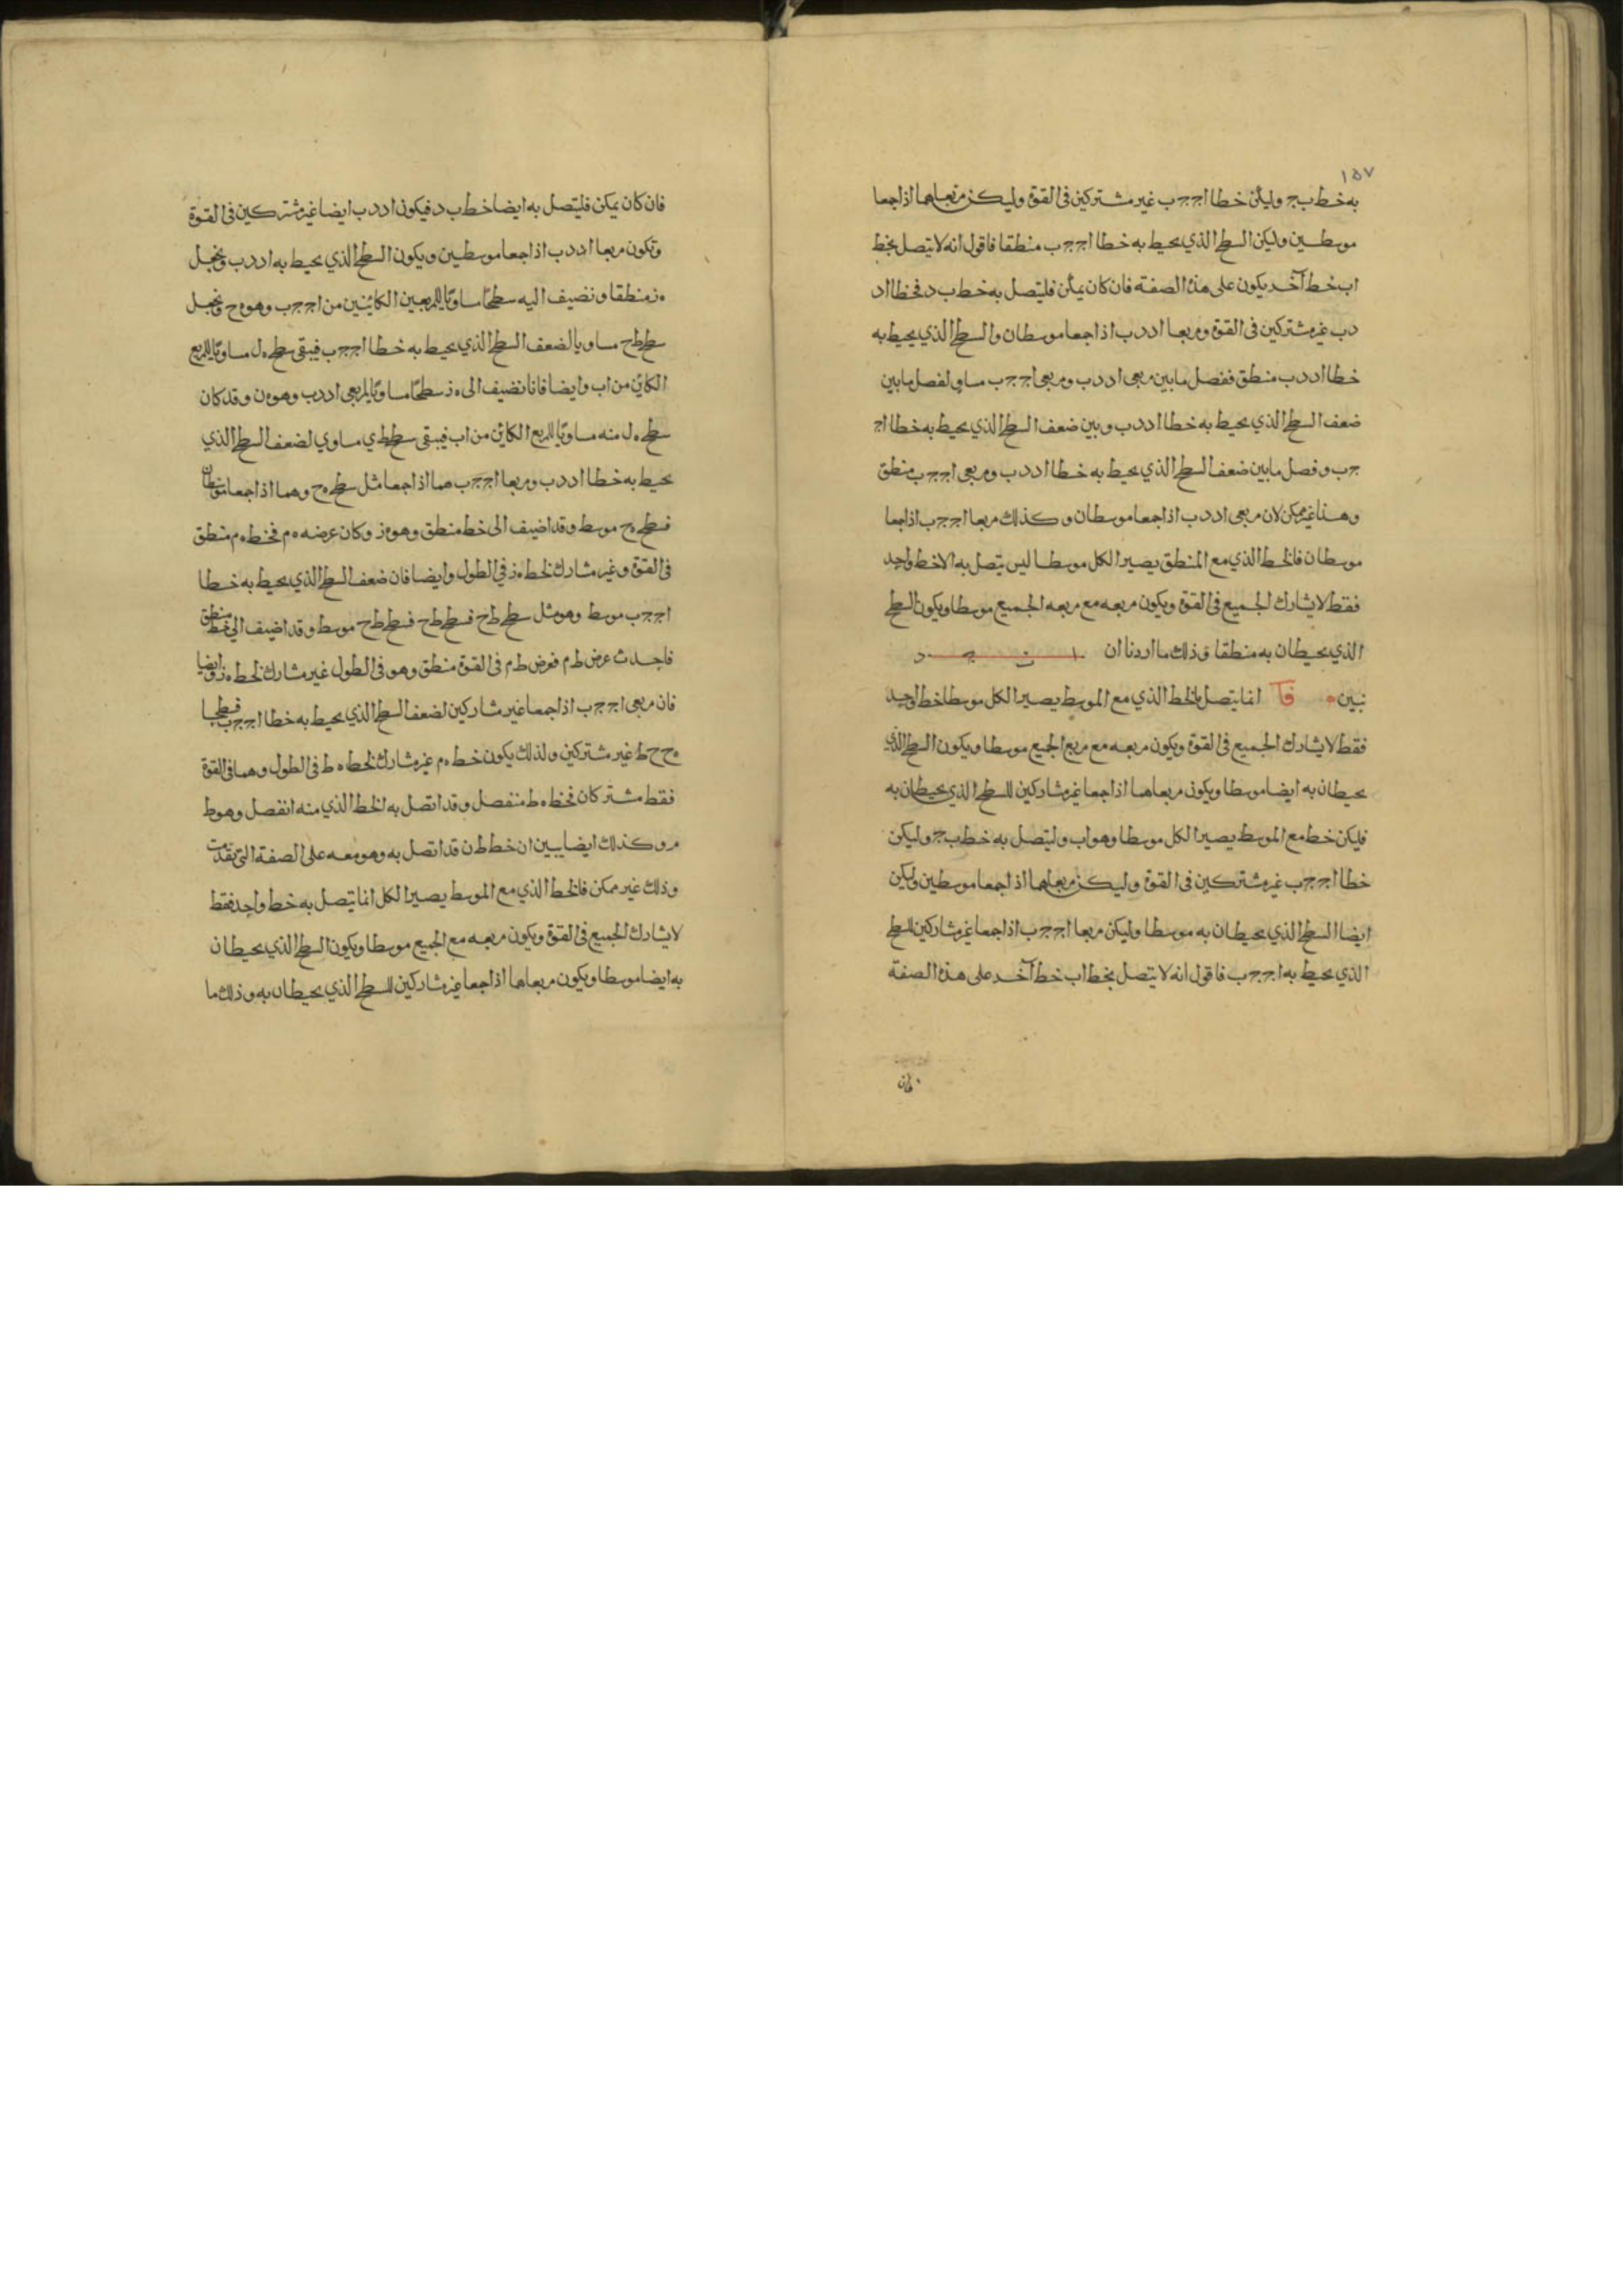 ١٥٧
به خط ب ج وليكن خطا ا ج ج ب غير مشتركين في القوة وليكن مربعاهما اذا جمعا
موسطين وليكن السطح الذي يحيط به خطا ا ج ج ب منطقا فاقول انه لا يتصل بخط
ا ب خط آخر يكون على هذه الصفة فان كان يمكن فليتصل به خط ب د فخطا ا د
د ب غير مشتركين في القوة ومربعا ا د د ب اذا جمعا موسطان والسطح الذي يحيط به
خطا ا د د ب منطق ففصل ما بين مربعي ا د د ب ومربعي ا ج ج ب مساو لفصل ما بين
ضعف السطح الذي يحيط به خطا ا د د ب وبين ضعف السطح الذي يحيط به خطا ا ج
ج ب وفصل ما بين ضعف السطح الذي يحيط به خطا ا د د ب ومربعي ا ج ج ب منطق
وهذا غير ممكن لان مربعي ا د د ب اذا جمعا موسطان وكذلك مربعا ا ج ج ب اذا جمعا
موسطان فالخط الذي مع المنطق يصير الكل موسطا ليس يتصل به الا خط واحد
فقط لا يشارك الجميع في القوة ويكون مربعه مع مربعه الجميع موسطا ويكون السطح
الذي يحيطان به منطقا وذلك ما اردنا ان ا ب ج د
نبين ٥ فآ انما يتصل بالخط الذي مع الموسط يصير الكل موسطا خط واحد
فقط لا يشارك الجميع في القوة ويكون مربعه مع مربع الجميع موسطا ويكون السطح الذي
يحيطان به ايضا موسطا ويكون مربعاهما اذا جمعا غير مشاركين للسطح الذي يحيطان به
فليكن خط مع الموسط يصير الكل موسطا وهو ا ب وليتصل به خط ب ج وليكن
خطا ا ج ج ب غير مشتركين في القوة وليكن مربعاهما اذا جمعا موسطين وليكن
ايضا السطح الذي يحيطان به موسطا وليكن مربعا ا ج ج ب اذا جمعا غير مشاركين للسطح
الذي يحيط به ا ج ج ب فاقول انه لا يتصل بخط ا ب خط آخر على هذه الصفة
فان
فان كان يمكن فليتصل به ايضا خط ب د فيكون ا د د ب ايضا غير مشتركين في القوة
وتكون مربعا ا د د ب اذا جمعا موسطين ويكون السطح الذي يحيط به ا د د ب ونجعل
ه ز منطقا ونضيف اليه سطحا مساويا للمربعين الكائنين من ا ج ج ب وهو ه ح ونجعل
سطح ط ح مساويا لضعف السطح الذي يحيط به خطا ا ج ج ب فيبقى سطح ه ل مساويا للمربع
الكائن من ا ب وايضا فانا نضيف الى ه ز سطحا مساويا لمربعي ا د د ب وهو ه ن وقد كان
سطح ه ل منه مساويا للمربع الكائن من ا ب فيبقى سطح ط ي مساوي لضعف السطح الذي
يحيط به خطا ا د د ب ومربعا ا ج ج ب هما اذا جمعا مثل سطح ه ح وهما اذا جمعا موسطان
فسطح ه ح موسط وقد اضيف الى خط منطق وهو ه ز وكان عرضه ه م فخط ه م منطق
في القوة وغير مشارك لخط ه ز في الطول وايضا فان ضعف السطح الذي يحيط به خطا
ا ج ج ب موسط وهو مثل سطح ط ح فسطح ط ح فسطح ط ح موسط وقد اضيف الى خط منطق
فاحدث عرض ط م فعرض ط م في القوة منطق وهو في الطول غير مشارك لخط ه ز وايضا
فان مربعي ا ج ج ب اذا جمعا غير مشاركين لضعف السطح الذي يحيط به خطا ا ج ج ب فسطحا
ه ح ح ط غير مشتركين ولذلك يكون خط ه م غير مشارك لخط ه ط في الطول وهما في القوة
فقط مشتركان فخط ه ط منفصل وقد اتصل به الخط الذي منه انفصل وهو ط
م وكذلك ايضا يبين ان خط ط ن قد اتصل به وهو معه على الصفة التي تقدمت
وذلك غير ممكن فالخط الذي مع الموسط يصير الكل انما يتصل به خط واحد فقط
لا يشارك الجميع في القوة ويكون مربعه مع الجميع موسطا ويكون السطح الذي يحيطان
به ايضا موسطا ويكون مربعاهما اذا جمعا غير مشاركين للسطح الذي يحيطان به وذلك ما